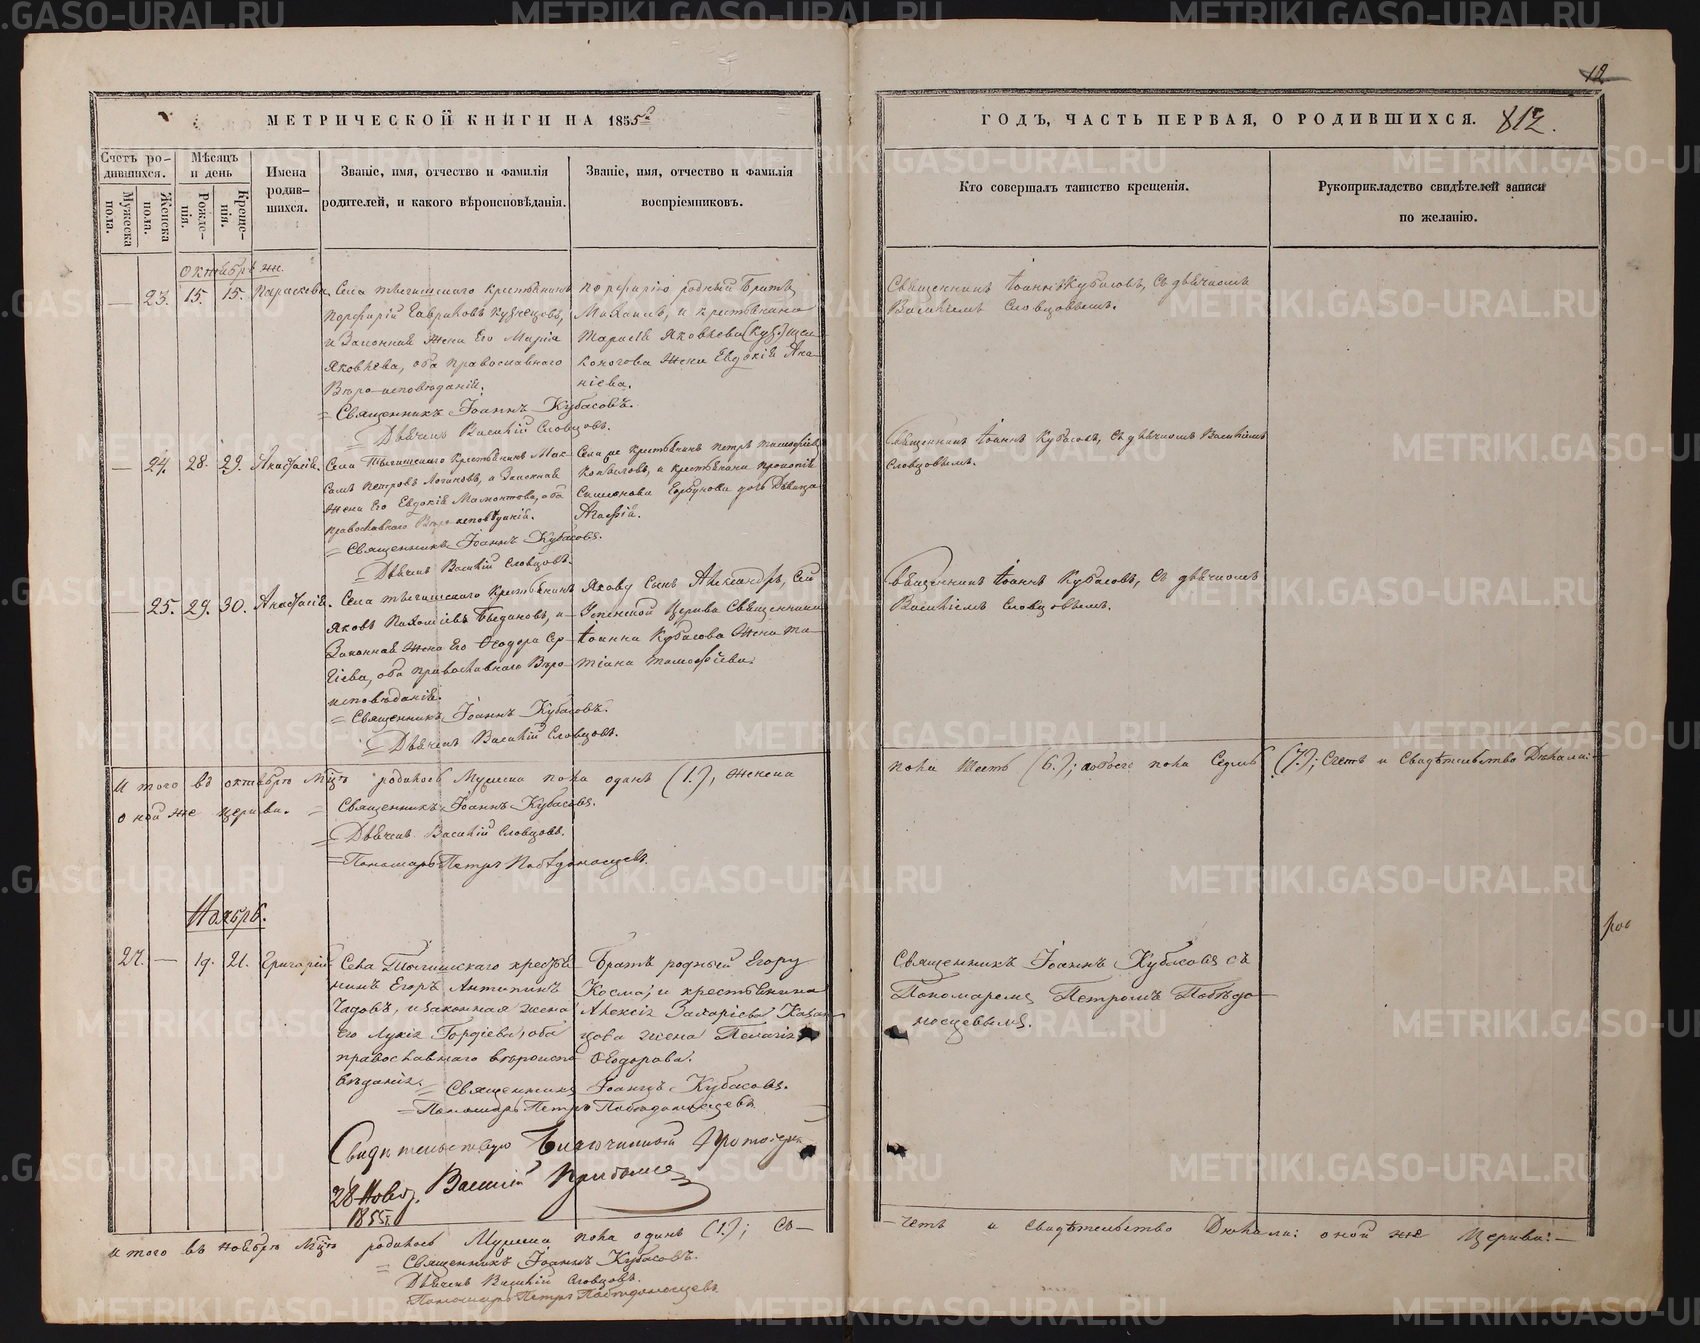 МЕТРИЧЕСКОЙ КНИГИ НА 1855й
Счетъ ро-
дившихся.
Мужеска
пола.
Женска
пола.
Мѣсяцъ
и день
Рожде-
нія.
Креще-
нія.
Имена
родив-
шихся.
Званіе, имя, отчество и фамилія
родителей, и какого вѣроисповѣданія.
Званіе, имя, отчество и фамилія
воспріемниковъ.
октября
— 23. 15. 15. Параскева.
Села крестьянинъ
Порфирій Гавриловъ Кузнецовъ,
и Законная жена Его Марія
Яковлева, оба православнаго
Вѣро-исповѣданія.
= Священникъ Іоаннъ Кубасовъ.
= Дьячекъ Василій Словцовъ.
Порфирію родный Братъ
Михаилъ, и крестьянина
Яковлева
жена Евдокія Ана-
ніева.
— 24. 28. 29. Анастасія.
Села крестьянинъ Мак-
симъ Петровъ Логиновъ, и Законная
жена Его Евдокія Мамонтова, оба
православнаго Вѣро-исповѣданія.
= Священникъ Іоаннъ Кубасовъ.
= Дьячекъ Василій Словцовъ.
крестьянинъ Петръ Тимофѣевъ
Копыловъ, и крестьянина Прокопія
Симонова дочь Дѣвица
Агафія.
— 25. 29. 30. Анастасія.
Села крестьянинъ
Яковъ Пахомовъ и
Законная жена Его Ѳеодора Сер-
гіева, оба православнаго Вѣро-
исповѣданія.
= Священникъ Іоаннъ Кубасовъ.
= Дьячекъ Василій Словцовъ.
Якову Сынъ Александръ,
Успенской Церкви Священника
Іоанна Кубасова жена Та-
тіана Тимофѣева.
И того въ октябрѣ мцѣ родилось Мужеска пола одинъ (1.), женска
оной же церкви. = Священникъ Іоаннъ Кубасовъ.
= Дьячекъ Василій Словцовъ.
= Пономарь Петръ Побѣдоносцевъ.
Ноябрь.
27. — 19. 21. Григорій
Села крестья-
нинъ Егоръ Антипинъ
Чадовъ, и законная жена
его Лукія Гордіева, оба
православнаго вѣроиспо-
вѣданія.
= Священникъ Іоаннъ Кубасовъ.
= Пономарь Петръ Побѣдоносцевъ
Братъ родный Егору
Косма, и крестьянина
Алексія Захаріева Казан-
цова жена Пелагія
Ѳеодорова.
Свидѣтельствую Благочинный Протоіерей
28 Нояб. Василій
1855.
И того въ ноябрѣ мцѣ родилось Мужеска пола одинъ (1.); Сч—
= Священникъ Іоаннъ Кубасовъ.
Дьячекъ Василій Словцовъ.
Пономарь Петръ Побѣдоносцевъ
12
ГОДЪ, ЧАСТЬ ПЕРВАЯ, О РОДИВШИХСЯ. 812.
Кто совершалъ таинство крещенія.
Рукоприкладство свидѣтелей записи
по желанію.
Священникъ Іоаннъ Кубасовъ, Съ дьячкомъ
Василіемъ Словцовымъ.
Священникъ Іоаннъ Кубасовъ, Съ дьячкомъ Василіемъ
Словцовымъ.
Священникъ Іоаннъ Кубасовъ, Съ дьячкомъ
Василіемъ Словцовымъ.
пола Шесть (6.); обоего пола Седмь (7.); Счетъ и Свидѣтельство Дѣлали:
Священникъ Іоаннъ Кубасовъ съ
Пономаремъ Петромъ Побѣдо-
носцевымъ.
—четъ и Свидѣтельство Дѣлали: оной же Церкви:—
METRIKI.GASO-URAL.RU